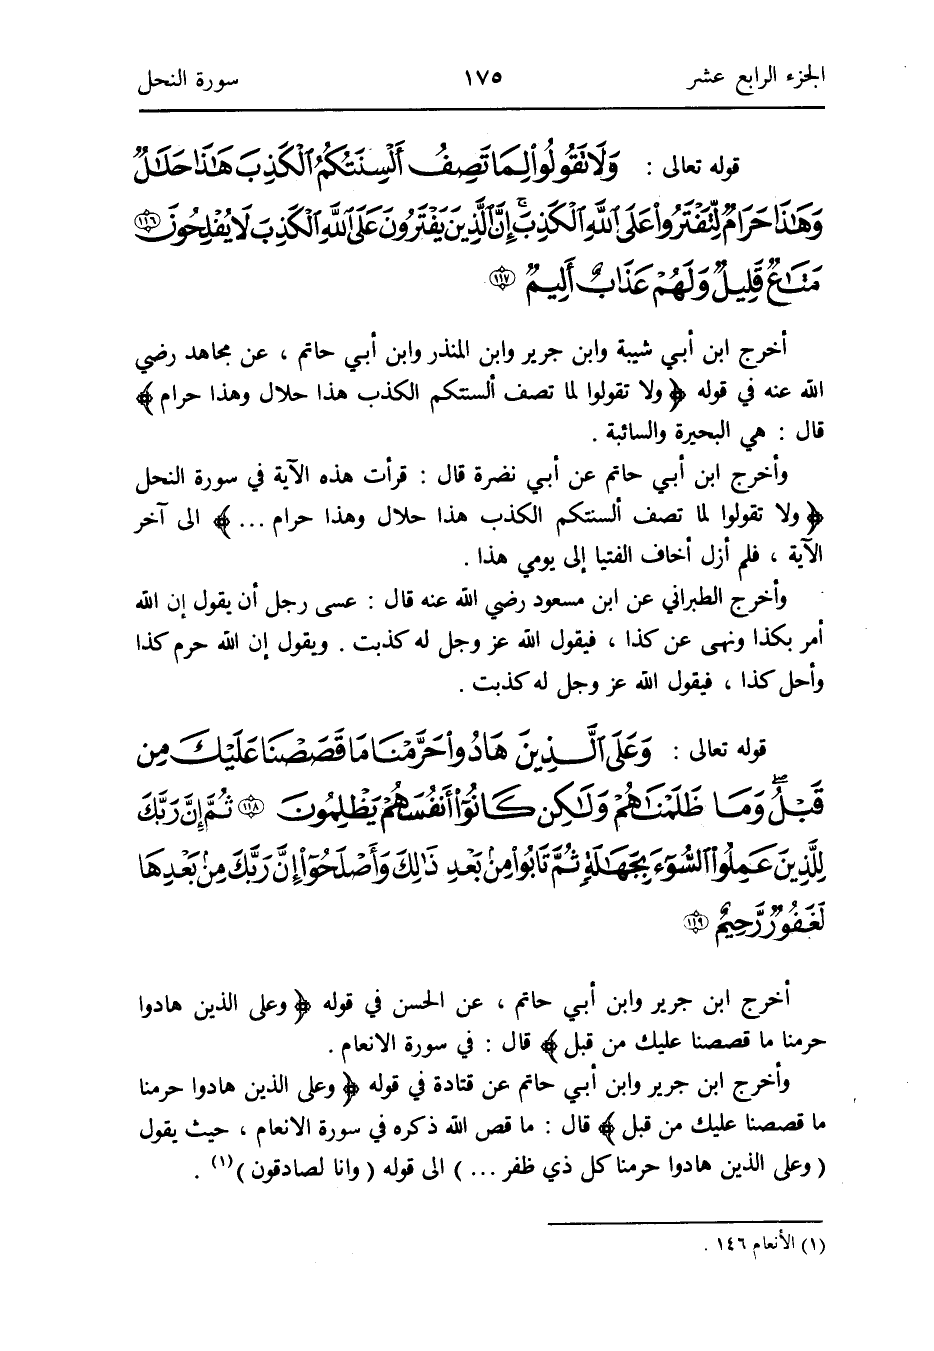 الجزء الرابع عشر ١٧٥ سورة النحل
قوله تعالى : وَلَا تَقُولُوا۟ لِمَا تَصِفُ أَلْسِنَتُكُمُ ٱلْكَذِبَ هَـٰذَا حَلَـٰلٌ
وَهَـٰذَا حَرَامٌ لِّتَفْتَرُوا۟ عَلَى ٱللَّهِ ٱلْكَذِبَ ۚ إِنَّ ٱلَّذِينَ يَفْتَرُونَ عَلَى ٱللَّهِ ٱلْكَذِبَ لَا يُفْلِحُونَ ١١٦
مَتَـٰعٌ قَلِيلٌ وَلَهُمْ عَذَابٌ أَلِيمٌ ١١٧
أخرج ابن أبي شيبة وابن جرير وابن المنذر وابن أبي حاتم ، عن مجاهد رضي
الله عنه في قوله ﴿ ولا تقولوا لما تصف ألسنتكم الكذب هذا حلال وهذا حرام ﴾
قال : هي البحيرة والسائبة .
وأخرج ابن أبي حاتم عن أبي نضرة قال : قرأت هذه الآية في سورة النحل
﴿ ولا تقولوا لما تصف ألسنتكم الكذب هذا حلال وهذا حرام ... ﴾ الى آخر
الآية ، فلم أزل أخاف الفتيا إلى يومي هذا .
وأخرج الطبراني عن ابن مسعود رضي الله عنه قال : عسى رجل أن يقول إن الله
أمر بكذا ونهى عن كذا ، فيقول الله عز وجل له كذبت . ويقول إن الله حرم كذا
وأحل كذا ، فيقول الله عز وجل له كذبت .
قوله تعالى : وَعَلَى ٱلَّذِينَ هَادُوا۟ حَرَّمْنَا مَا قَصَصْنَا عَلَيْكَ مِن
قَبْلُ ۖ وَمَا ظَلَمْنَـٰهُمْ وَلَـٰكِن كَانُوٓا۟ أَنفُسَهُمْ يَظْلِمُونَ ١١٨ ثُمَّ إِنَّ رَبَّكَ
لِلَّذِينَ عَمِلُوا۟ ٱلسُّوٓءَ بِجَهَـٰلَةٍ ثُمَّ تَابُوا۟ مِنۢ بَعْدِ ذَٰلِكَ وَأَصْلَحُوٓا۟ إِنَّ رَبَّكَ مِنۢ بَعْدِهَا
لَغَفُورٌ رَّحِيمٌ ١١٩
أخرج ابن جرير وابن أبي حاتم ، عن الحسن في قوله ﴿ وعلى الذين هادوا
حرمنا ما قصصنا عليك من قبل ﴾ قال : في سورة الانعام .
وأخرج ابن جرير وابن أبي حاتم عن قتادة في قوله ﴿ وعلى الذين هادوا حرمنا
ما قصصنا عليك من قبل ﴾ قال : ما قص الله ذكره في سورة الانعام ، حيث يقول
( وعلى الذين هادوا حرمنا كل ذي ظفر ... ) الى قوله ( وانا لصادقون )(١) .
(١) الأنعام ١٤٦ .